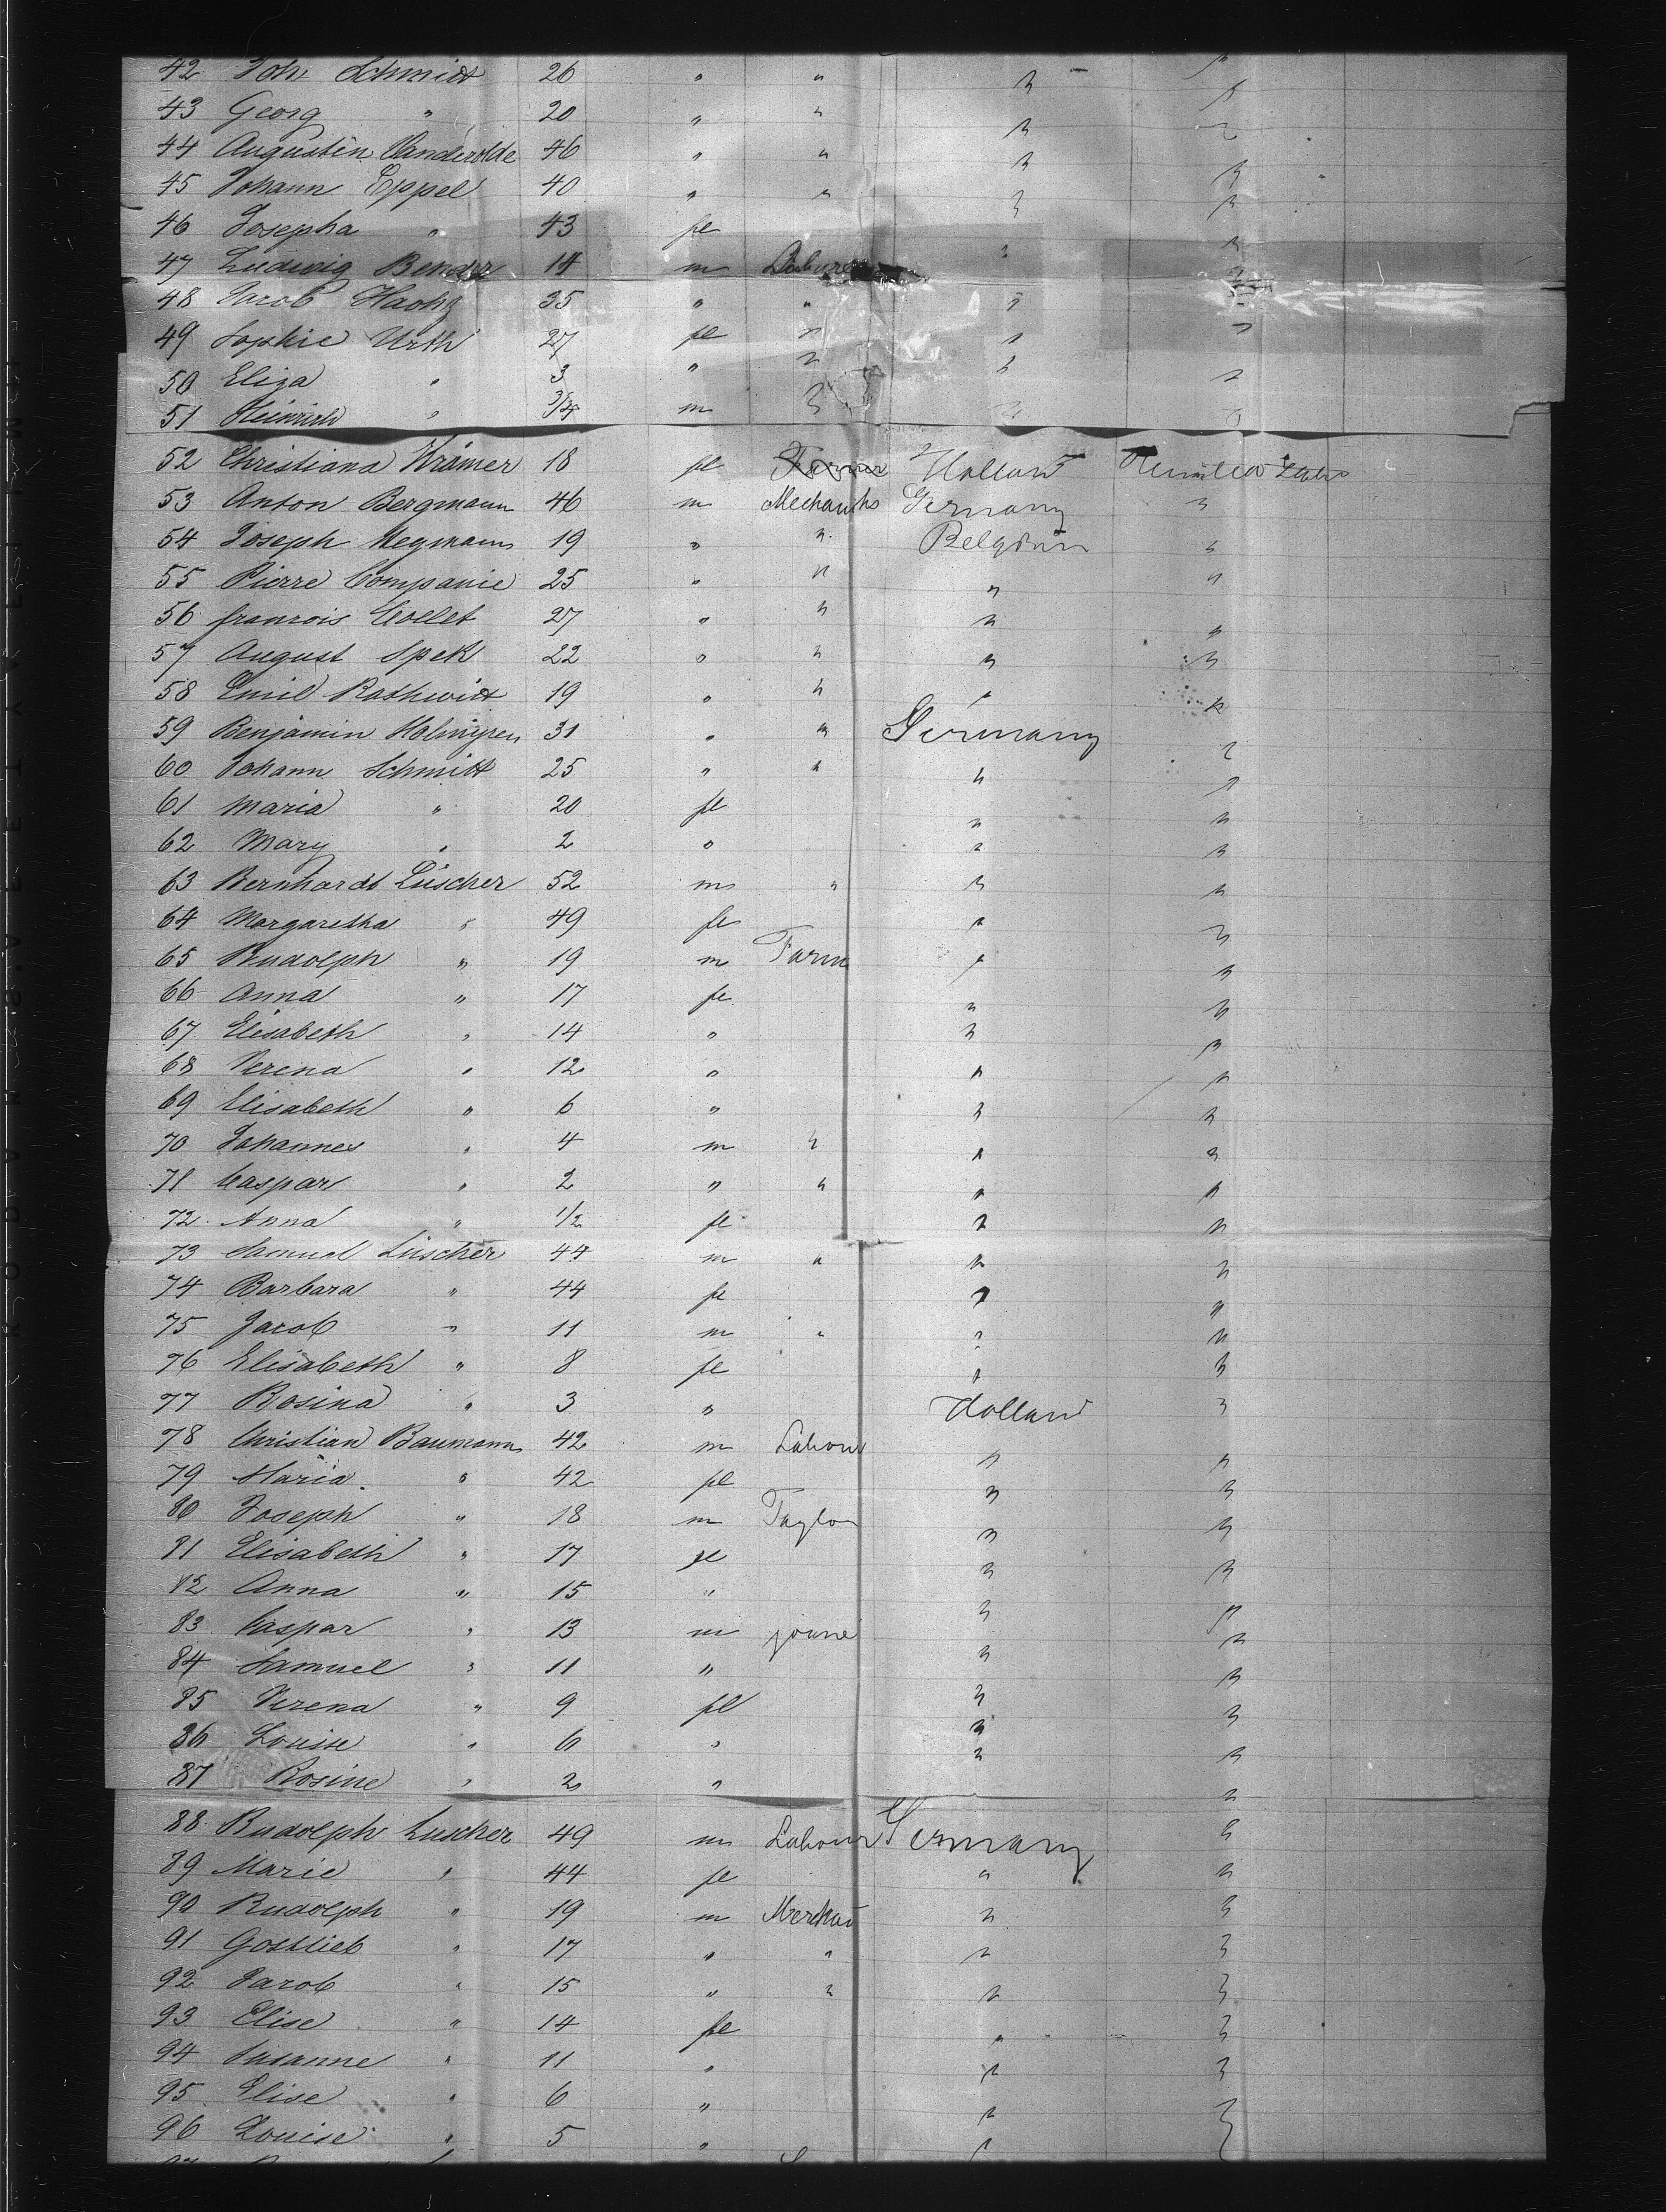 42 Joh Schmidt 26 " " " "
43 Georg " 20 " " " "
44 Augustin Vanderolde 46 " " " "
45 Johann Eppel 40 " " " "
46 Josepha " 43 fe " "
47 Ludwig Bender 14 m Labore " "
48 Jacob 35 " " " "
49 Sophie Urth 27 fe " " "
50 Eliza " 3 " " " "
51 Heinrich " 3/4 m " " "
52 Christiana Krämer 18 fe Farmer Holland United States
53 Anton Bergmann 46 m Mechaniks Germany "
54 Joseph Wegmann 19 " " Belgium "
55 Pierre Companie 25 " " " "
56 francois Collet 27 " " " "
57 August Spek 22 " " " "
58 Emil 19 " " " "
59 Benjamin 31 " " Germany "
60 Johann Schmitt 25 " " " "
61 Maria " 20 fe " "
62 Mary " 2 " " "
63 Bernhardt Lüscher 52 m " " "
64 Margaretha " 49 fe " "
65 Rudolph " 19 m Farm " "
66 Anna " 17 fe " "
67 Elisabeth " 14 " " "
68 Verena " 12 " " "
69 Elisabeth " 6 " " "
70 Johannes " 4 m " " "
71 Caspar " 2 " " " "
72 Anna " 1/2 fe " "
73 Samuel Lüscher 44 m " " "
74 Barbara " 44 fe " "
75 Jacob " 11 m " " "
76 Elisabeth " 8 fe " "
77 Rosina " 3 " Holland "
78 Christian Baumann 42 m Labour " "
79 Maria " 42 fe " "
80 Joseph " 18 m Taylor " "
81 Elisabeth " 17 fe " "
82 Anna " 15 " " "
83 Caspar " 13 m " "
84 Samuel " 11 " " "
85 Verena " 9 fe " "
86 Louise " 6 " " "
87 Rosine " 2 " " "
88 Rudolph Luscher 49 m Labour Germany "
89 Marie " 44 fe " "
90 Rudolph " 19 m Merchan " "
91 Gottlieb " 17 " " " "
92 Jacob " 15 " " " "
93 Elise " 14 fe " "
94 Susanne " 11 " " "
95 Elise " 6 " " "
96 Louise " 5 " " "